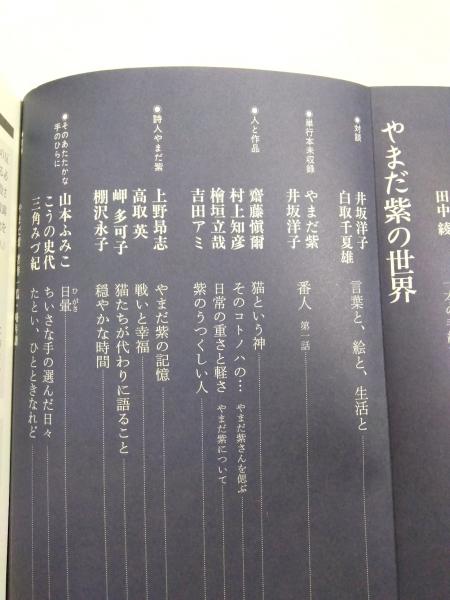 田中 綾
やまだ紫の世界
●対談
井坂洋子
白取千夏雄
言葉と、絵と、生活と
●単行本未収録
やまだ紫
井坂洋子
番人 第一話
●人と作品
齋藤愼爾 猫という神
村上知彦 そのコトノハの… やまだ紫さんを偲ぶ
檜垣立哉 日常の重さと軽さ やまだ紫について
吉田アミ 紫のうつくしい人
●詩人やまだ紫
上野昂志 やまだ紫の記憶
高取 英 戦いと幸福
岬 多可子 猫たちが代わりに語ること
棚沢永子 穏やかな時間
●そのあたたかな手のひらに
山本ふみこ 日暈 ひがさ
こうの史代 ちいさな手の選んだ日々
三角みづ紀 たとい、ひとときなれど